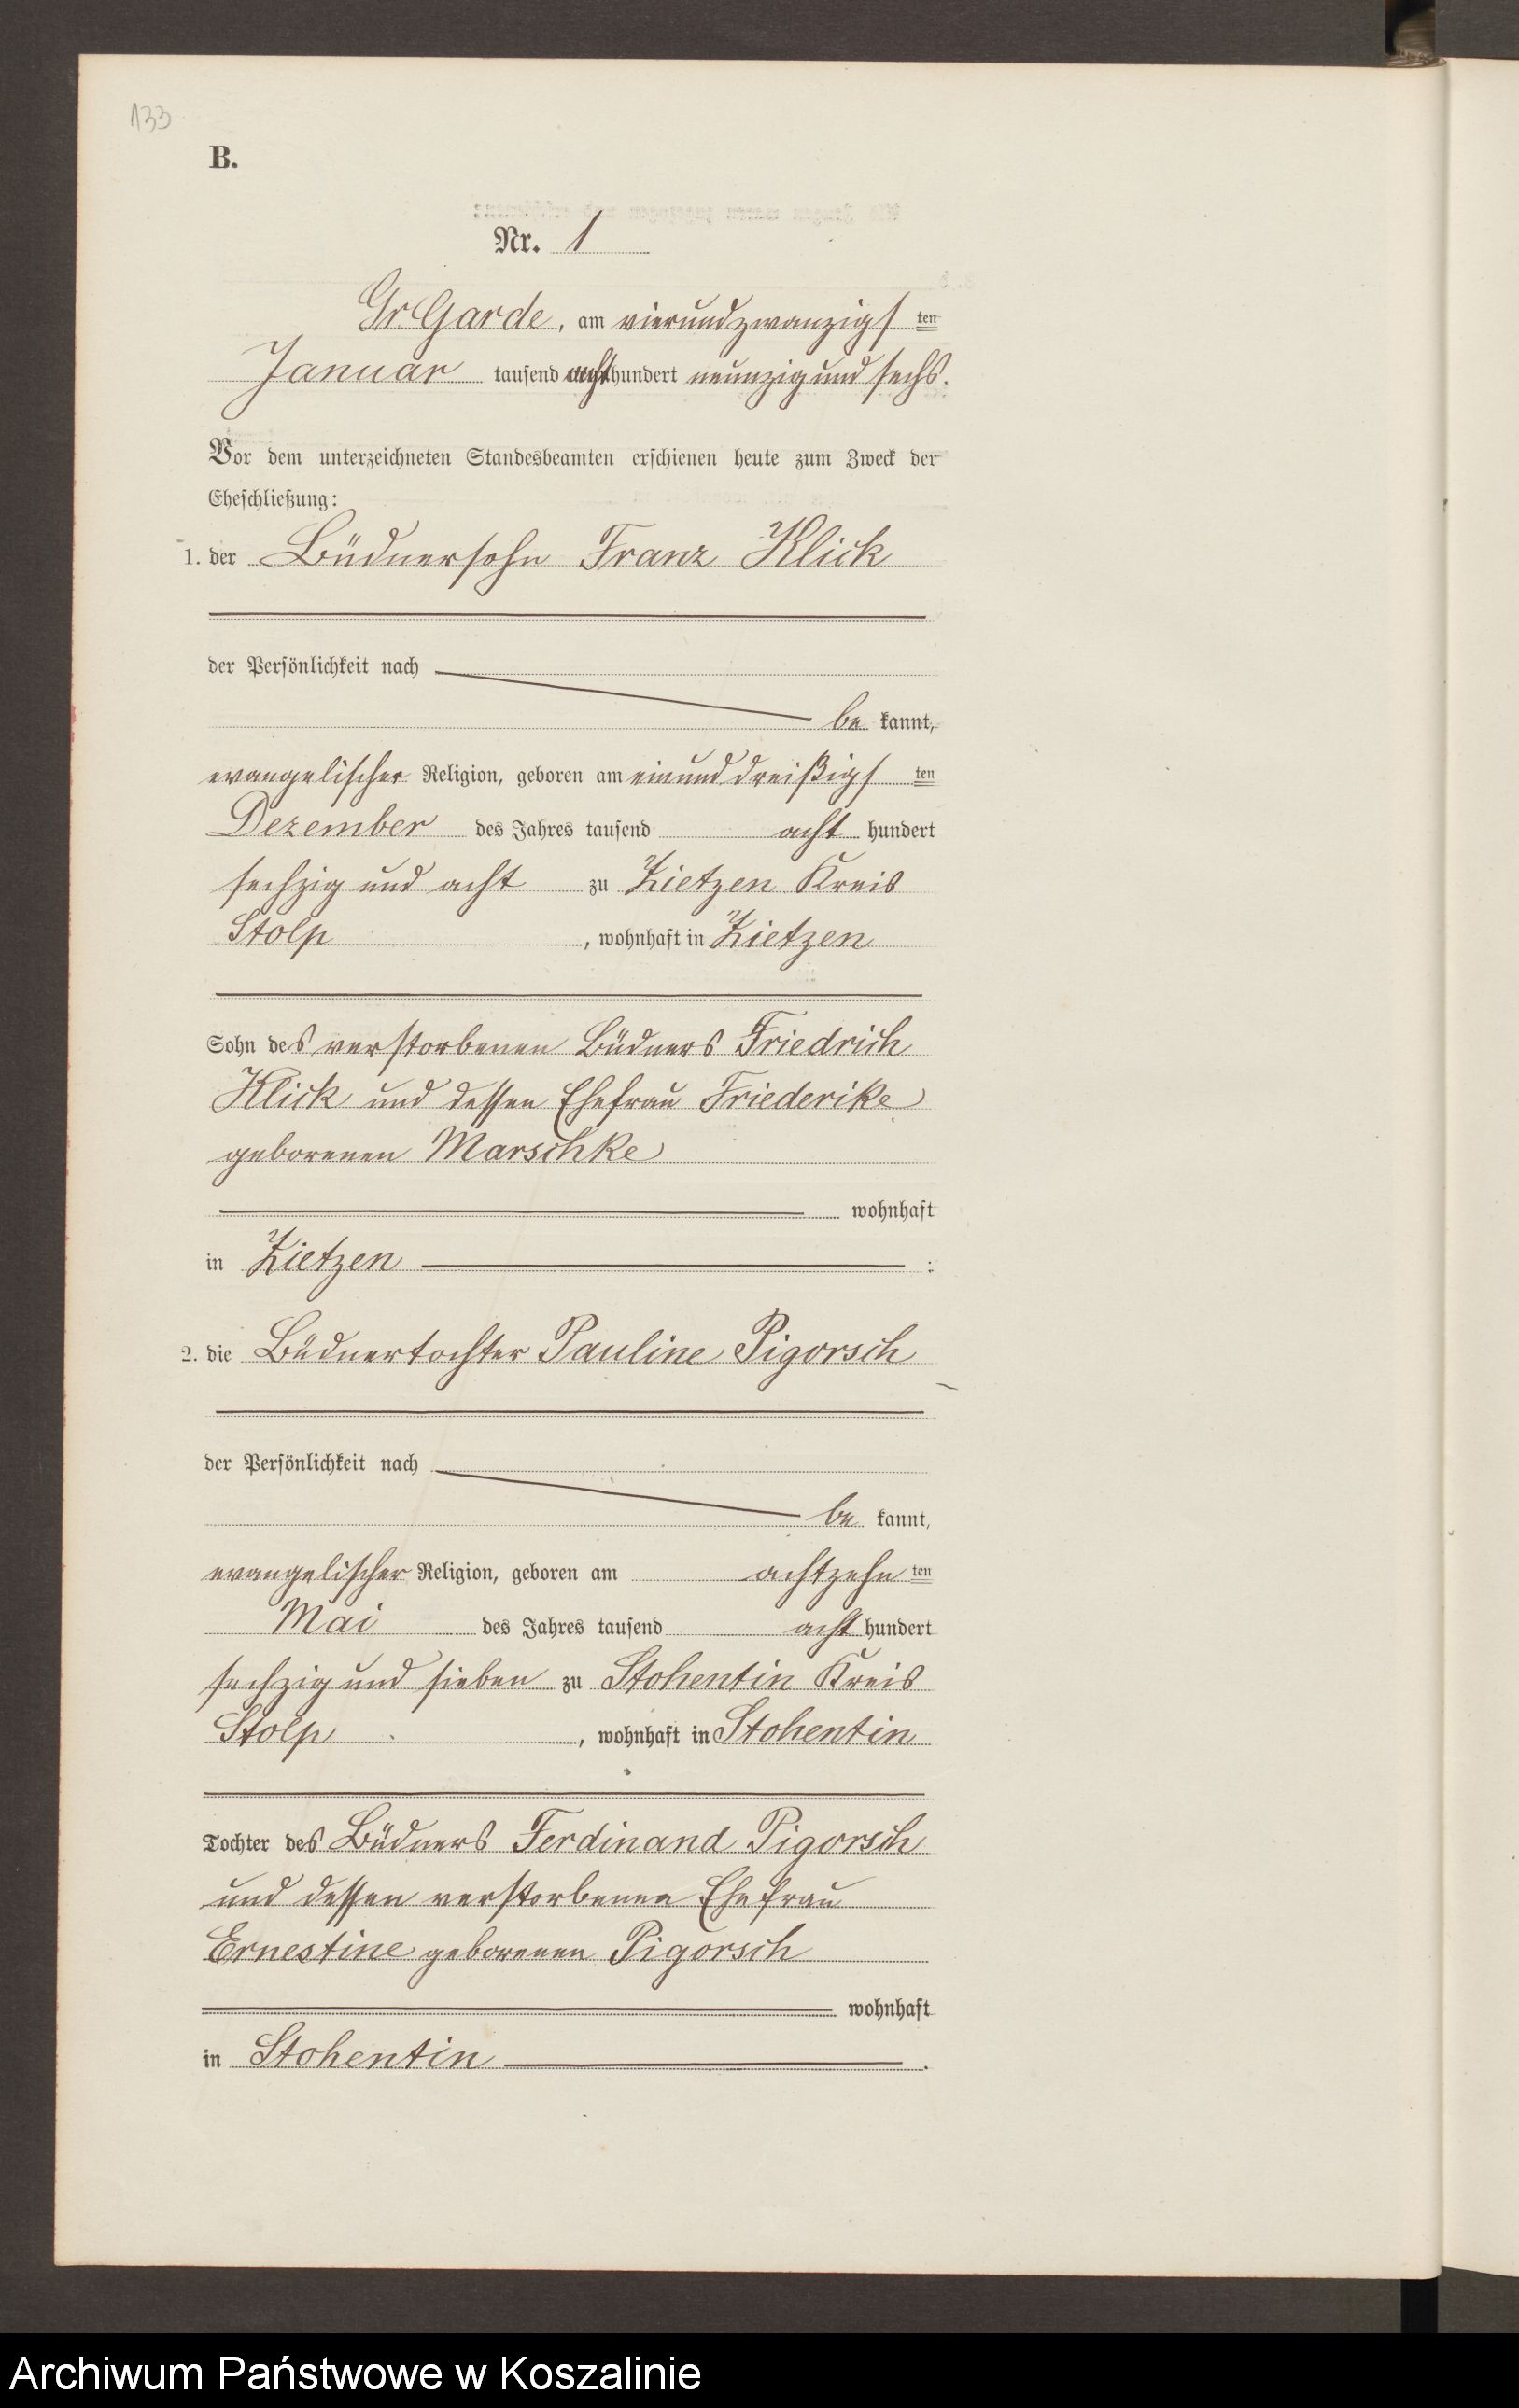 133
B.
Nr. 1
Gr. Garde, am vierundzwanzigsten
Januar tausend achthundert neunzig und sechs.
Vor dem unterzeichneten Standesbeamten erschienen heute zum Zweck der
Eheschließung:
1. der Büdnersohn Franz Klick
der Persönlichkeit nach
be kannt,
evangelischer Religion, geboren am einunddreißigsten
Dezember des Jahres tausend acht hundert
sechzig und acht zu Zietzen Kreis
Stolp, wohnhaft in Zietzen
Sohn des verstorbenen Büdners Friedrich
Klick und dessen Ehefrau Friederike
geborenen Marschke
wohnhaft
in Zietzen :
2. die Büdnertochter Pauline Pigorsch
der Persönlichkeit nach
be kannt,
evangelischer Religion, geboren am achtzehnten
Mai des Jahres tausend acht hundert
sechzig und sieben zu Stohentin Kreis
Stolp, wohnhaft in Stohentin
Tochter des Büdners Ferdinand Pigorsch
und dessen verstorbenen Ehefrau
Ernestine geborenen Pigorsch
wohnhaft
in Stohentin .
Archiwum Państwowe w Koszalinie